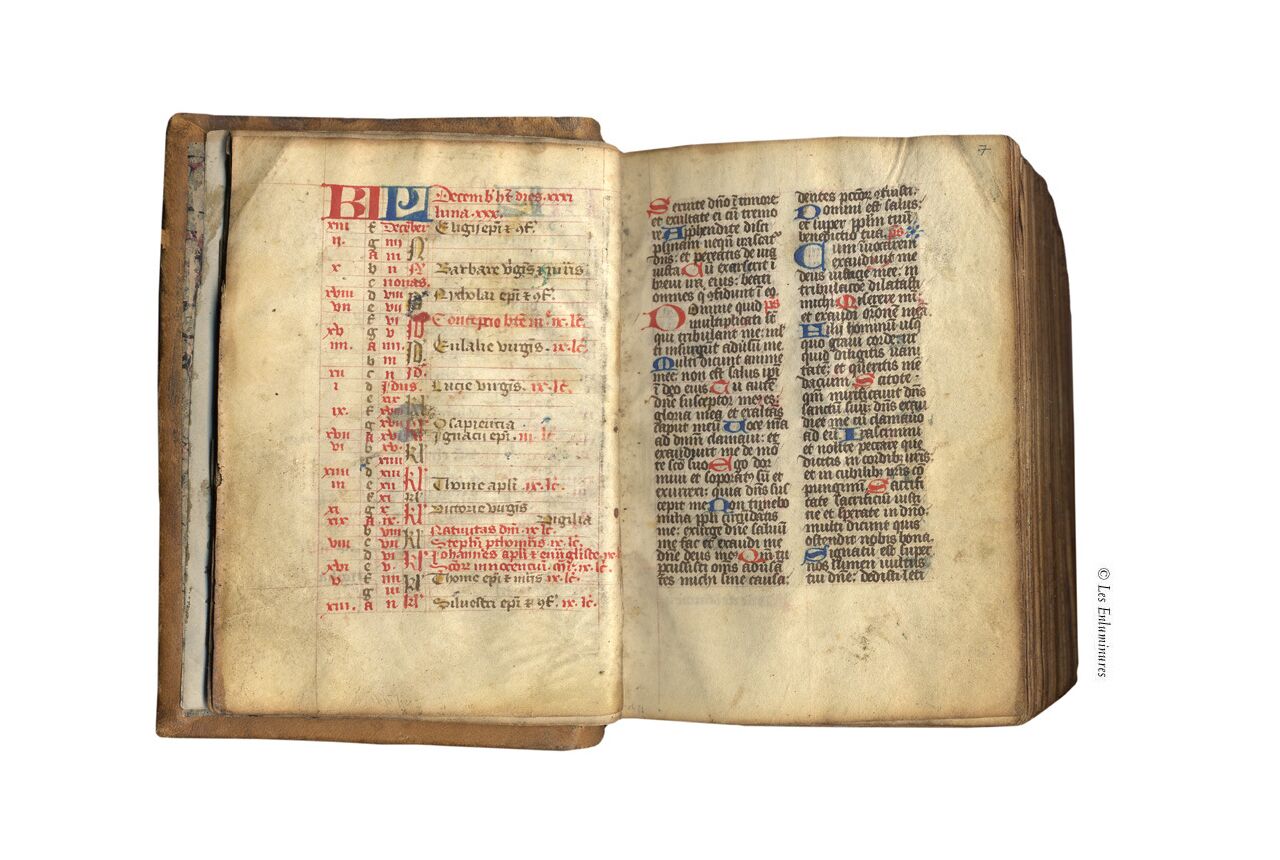 KL Decemb. ht. dies. xxxi
luna. xxx.
xiii f Decēber Eligij epi ⁊ ꝯf.
ii. g iiii
A iii N
x b ii N Barbare v̓gīs ⁊ mr̄is
c nonas.
xviii d viii Nicholai epi ⁊ ꝯf.
vii e vii
f vi ID Conceptio bt̄e m. ix. lc̄.
xv g v
iiii. A iiii. ID Eulalie virgīs. ix. lc̄.
b iii
xii c ii ID.
i d Idus. Lucie virgīs. ix. lc̄.
e xix
ix. f
g O sapientia
xvii A Ignacii epi. iii. lc̄
vi b xv. kl
c xiiii
xiiii d xiii kl Thome apli. ix. lc̄.
iii e
f xi kl
xi g x kl Victorie virgīs
xix A ix Vigilia
b viii kl Natiuitas dn̄i. ix. lc̄
viii c vii Stephi pthom̄is. ix. lc̄.
d vi kl Johannes apli ⁊ euūgliste.
xvi e v Scōr innocenciū. m̄. ix. lc̄.
v f iiii kl Thome epi ⁊ mr̄is ix. lc̄.
g iii
xiii. A ii kl Siluestri epi ⁊ ꝯf. ix. lc̄.
7
Seruite dn̄o ī timore
et exultate ei cū tremo
re Apphendite disci
plinam nequī irascat̄
dn̄s: et pereatis de uia
iusta Cū exarserit ī
breui ira eius: beati
omnes q ꝯfidunt ī eo.
Domine quid ps
multiplicati st̄
qui tribulant me: ml̄
ti insurgūt aduˢū me.
Multi dicunt anime
mee: non est salus ipi
ī deo eius Tu autē
dn̄e susceptor meus es:
gloria mea et exaltās
caput meū Uoce mea
ad dn̄m clamaui: et
exaudiuit me de mō
te scō suo Ego dor
miui et soporatꝰ sū et
exurrexi: quia dn̄s sus
cepit me Non timebo
milia ppli circūdātis
me: exurge dn̄e saluū
me fac deus meus Qm̄ tu
pcussisti oms̄ aduˢā
tes michi sine causa:
dentes pctōr ꝯtriuisti.
Domini est salus:
et super pplm tuū
benedictio tua. ps
Cum inuocarem
exaudiuit me
deus iusticie mee: in
tribulatōe dilatasti
michi Miserere mei:
et exaudi orōnē meā.
Filij hominū usq̄
quo graui corde: ut
quid diligitis uani
tatē: et queritis mē
dacium Scitote
qm̄ mirificauit dn̄s
sanctū suū: dn̄s exau
diet me cū clamauo
ad eū Irascimini
et nolite peccare que
dicitis in cordibꝰ uris:
et in cubilibꝰ uris cō
pungimī Sacrifi
cate sacrificiū iusti
cie et sperate in dn̄o:
multi dicunt quis
ostendit nobis bona.
Signatū est super
nos lumen uultus
tui dn̄e: dedisti leti
© Les Enluminures